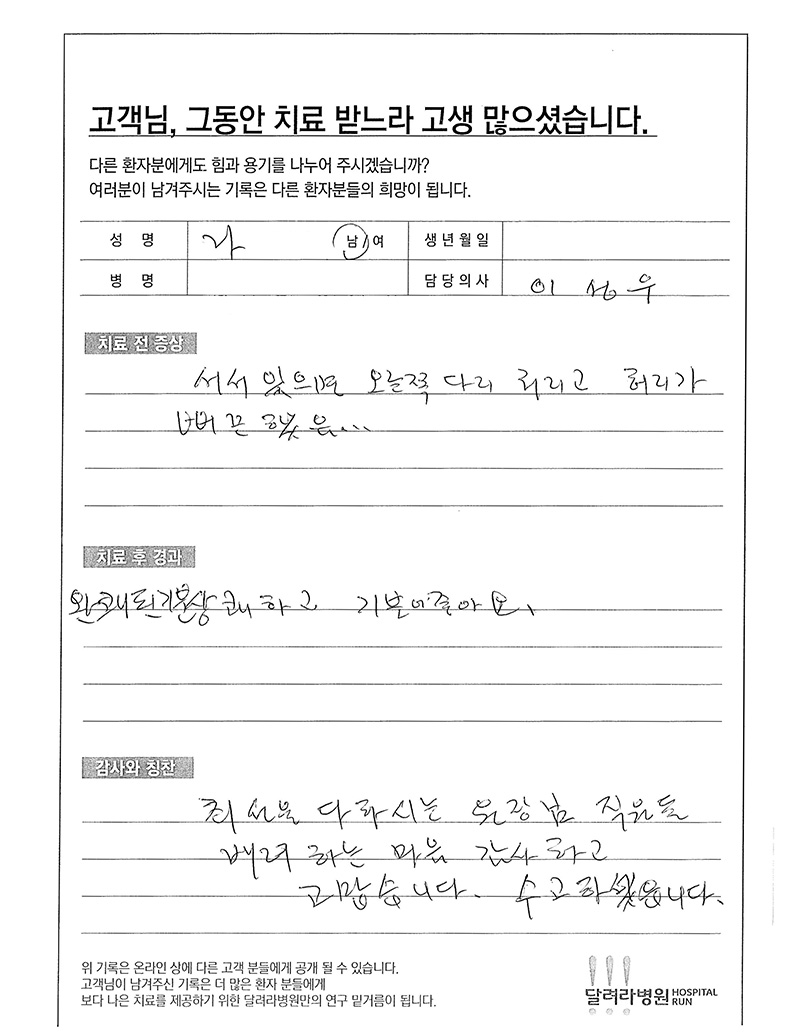 고객님, 그동안 치료 받느라 고생 많으셨습니다.
다른 환자분에게도 힘과 용기를 나누어 주시겠습니까?
여러분이 남겨주시는 기록은 다른 환자분들의 희망이 됩니다.
성 명 나 남/여 생년월일
병 명 담당의사 이성우
치료 전 증상
서서 있으면 오늘쪽 다리 저리고 허리가
뻐끈했음...
치료 후 경과
완쾌된기분상쾌하고 기분이좋아요.
감사와 칭찬
최선을 다하시는 원장님 직원들
배려하는 마음 감사하고
고맙습니다. 수고하셨읍니다.
위 기록은 온라인 상에 다른 고객 분들에게 공개 될 수 있습니다.
고객님이 남겨주신 기록은 더 많은 환자 분들에게
보다 나은 치료를 제공하기 위한 달려라병원만의 연구 밑거름이 됩니다.
달려라병원 HOSPITAL RUN